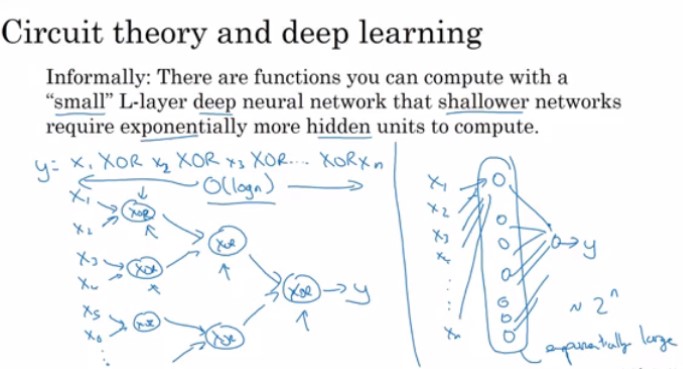 Circuit theory and deep learning
Informally: There are functions you can compute with a
“small” L-layer deep neural network that shallower networks
require exponentially more hidden units to compute.
y= x₁ XOR x₂ XOR x₃ XOR.... XOR xₙ
O(log n)
x₁
x₂
XOR
x₃
x₄
XOR
x₅
x₆
XOR
⋮
XOR
XOR
XOR
y
x₁
x₂
x₃
x₄
⋮
xₙ
y
~ 2ⁿ
exponentially large